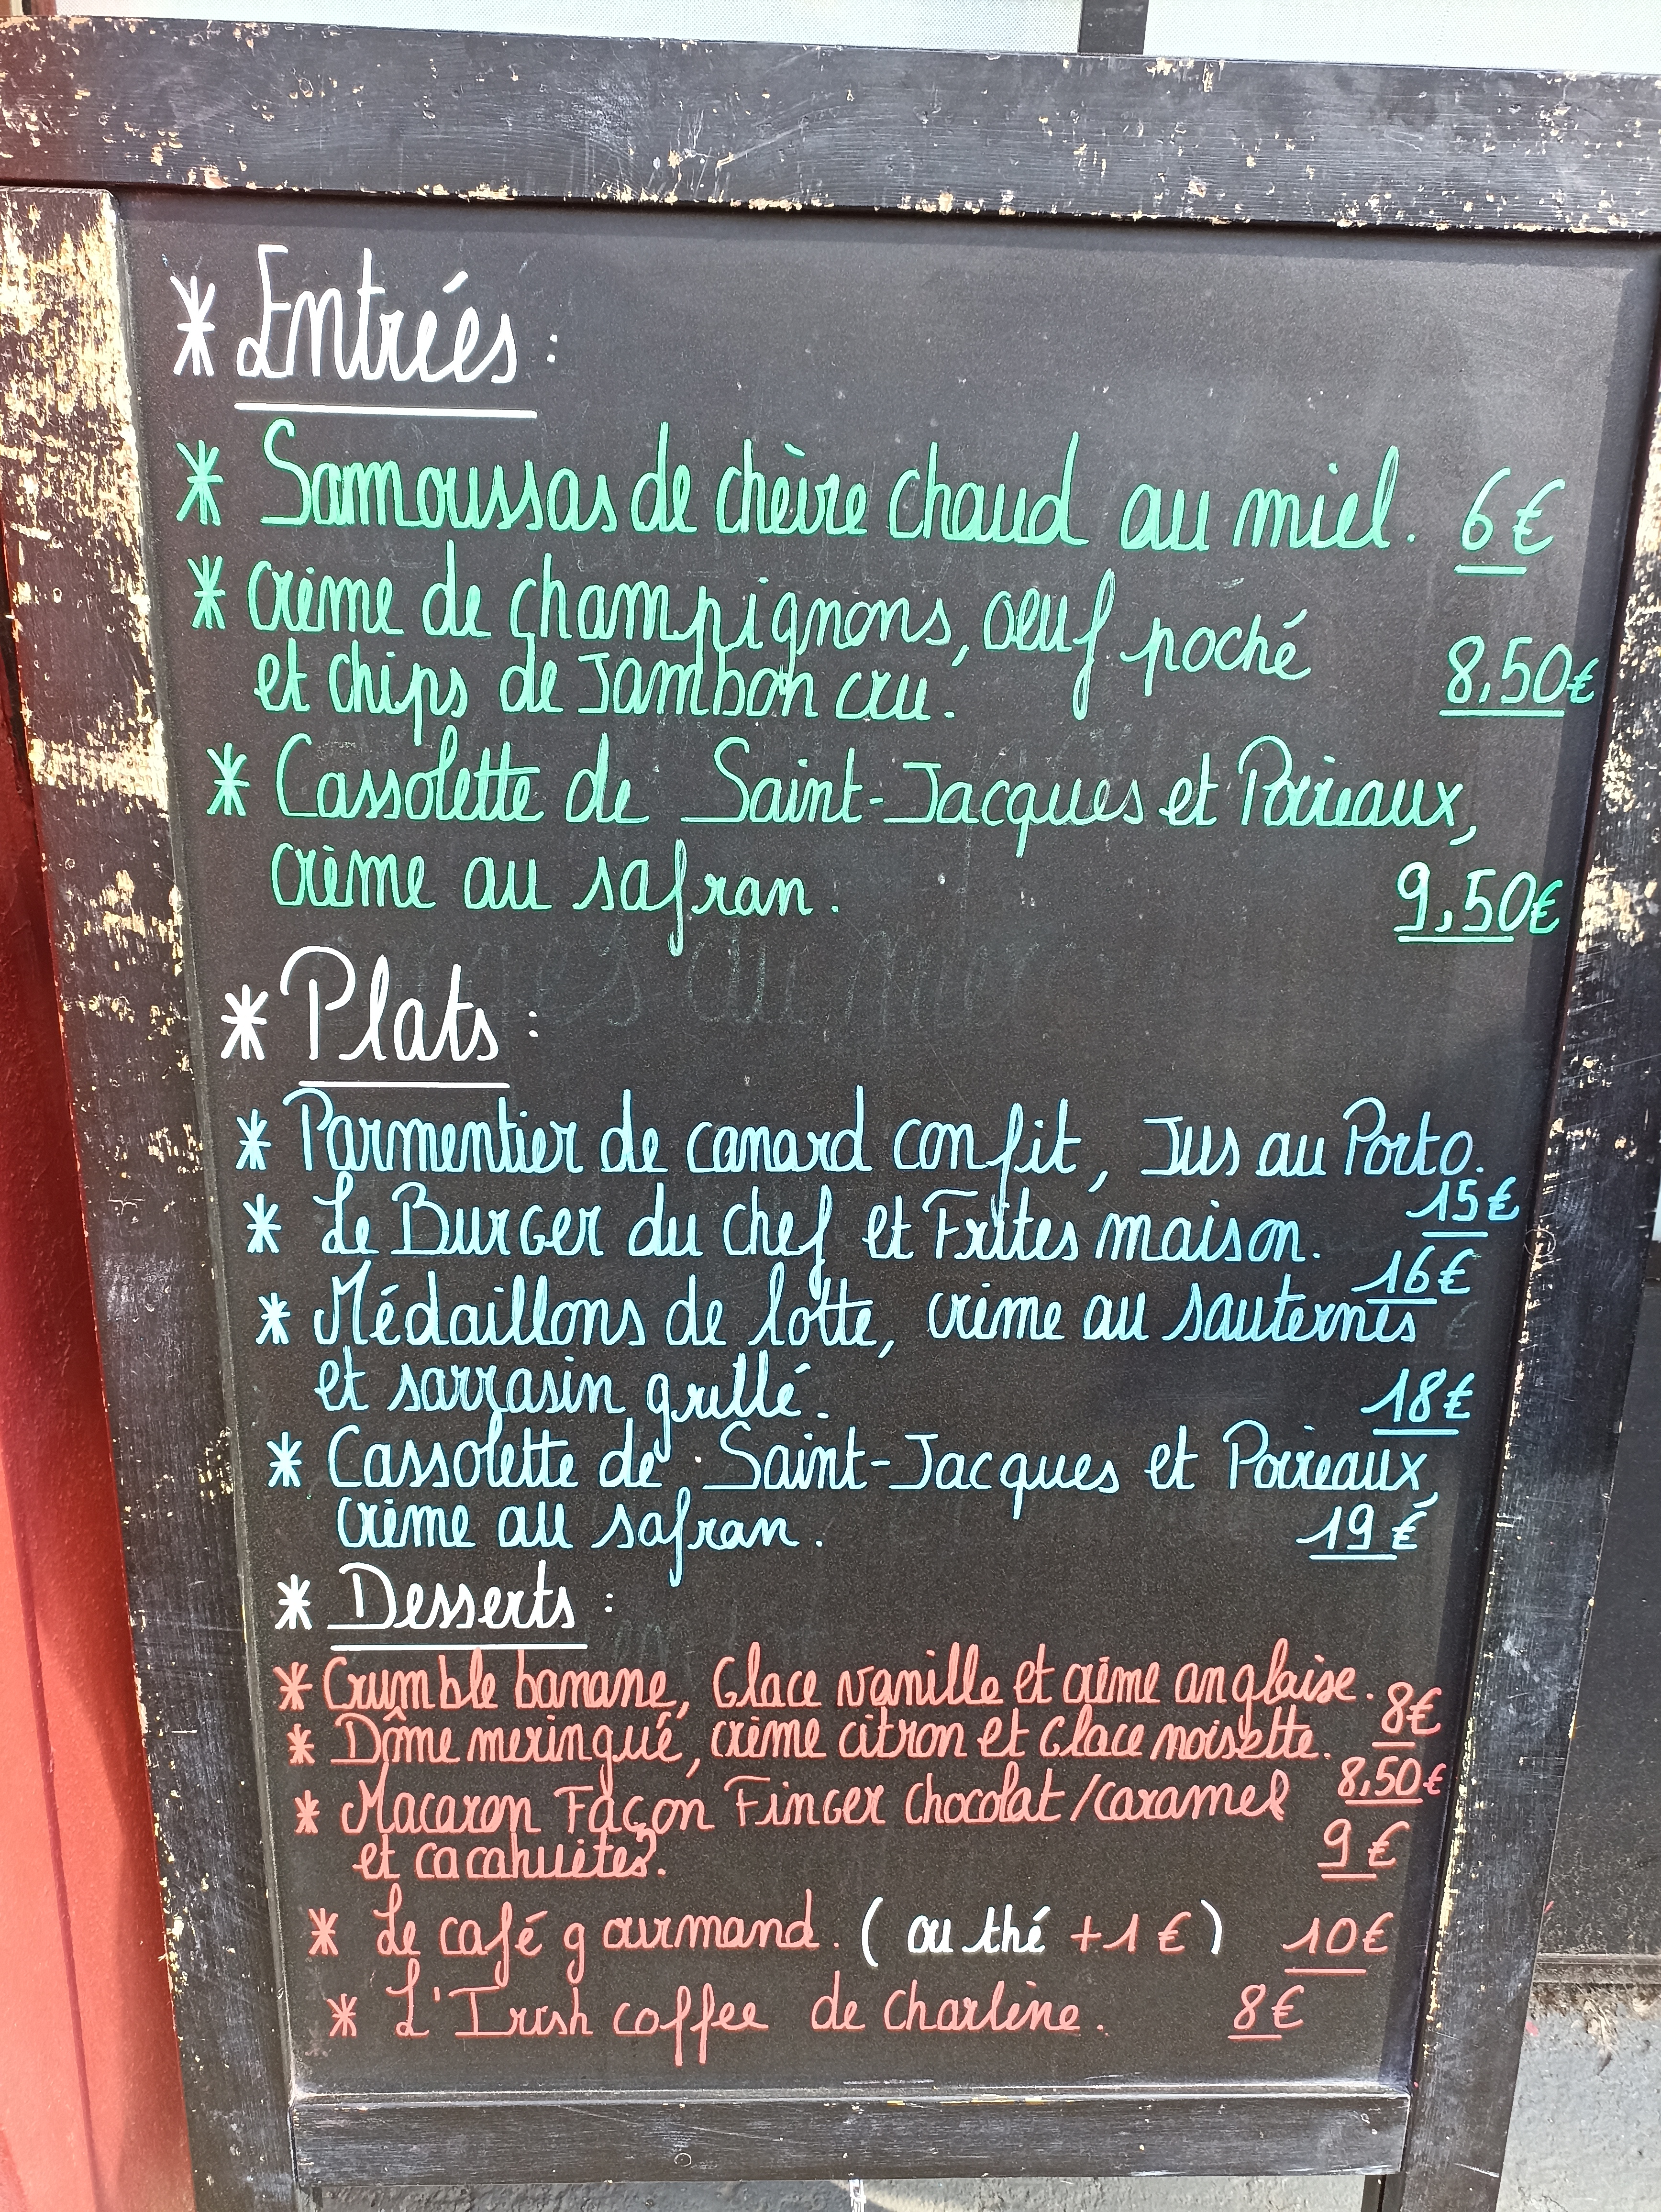 * Entrées :
* Samoussas de chèvre chaud au miel. 6€
* crème de champignons, oeuf poché
et chips de Jambon cru. 8,50€
* Cassolette de Saint-Jacques et Poireaux,
crème au safran. 9,50€
* Plats :
* Parmentier de canard confit, Jus au Porto.
15€
* Le Burger du chef et Frites maison.
16€
* Médaillons de lotte, crème au sauternes
et sarrasin grillé. 18€
* Cassolette de Saint-Jacques et Poireaux,
crème au safran. 19€
* Desserts :
* Crumble banane, Glace vanille et crème anglaise. 8€
* Dôme meringué, crème citron et Glace noisette.
8,50€
* Macaron Façon Finger chocolat/caramel
et cacahuètes. 9€
* Le café gourmand. (ou thé +1€) 10€
* L'Irish coffee de Charlène. 8€